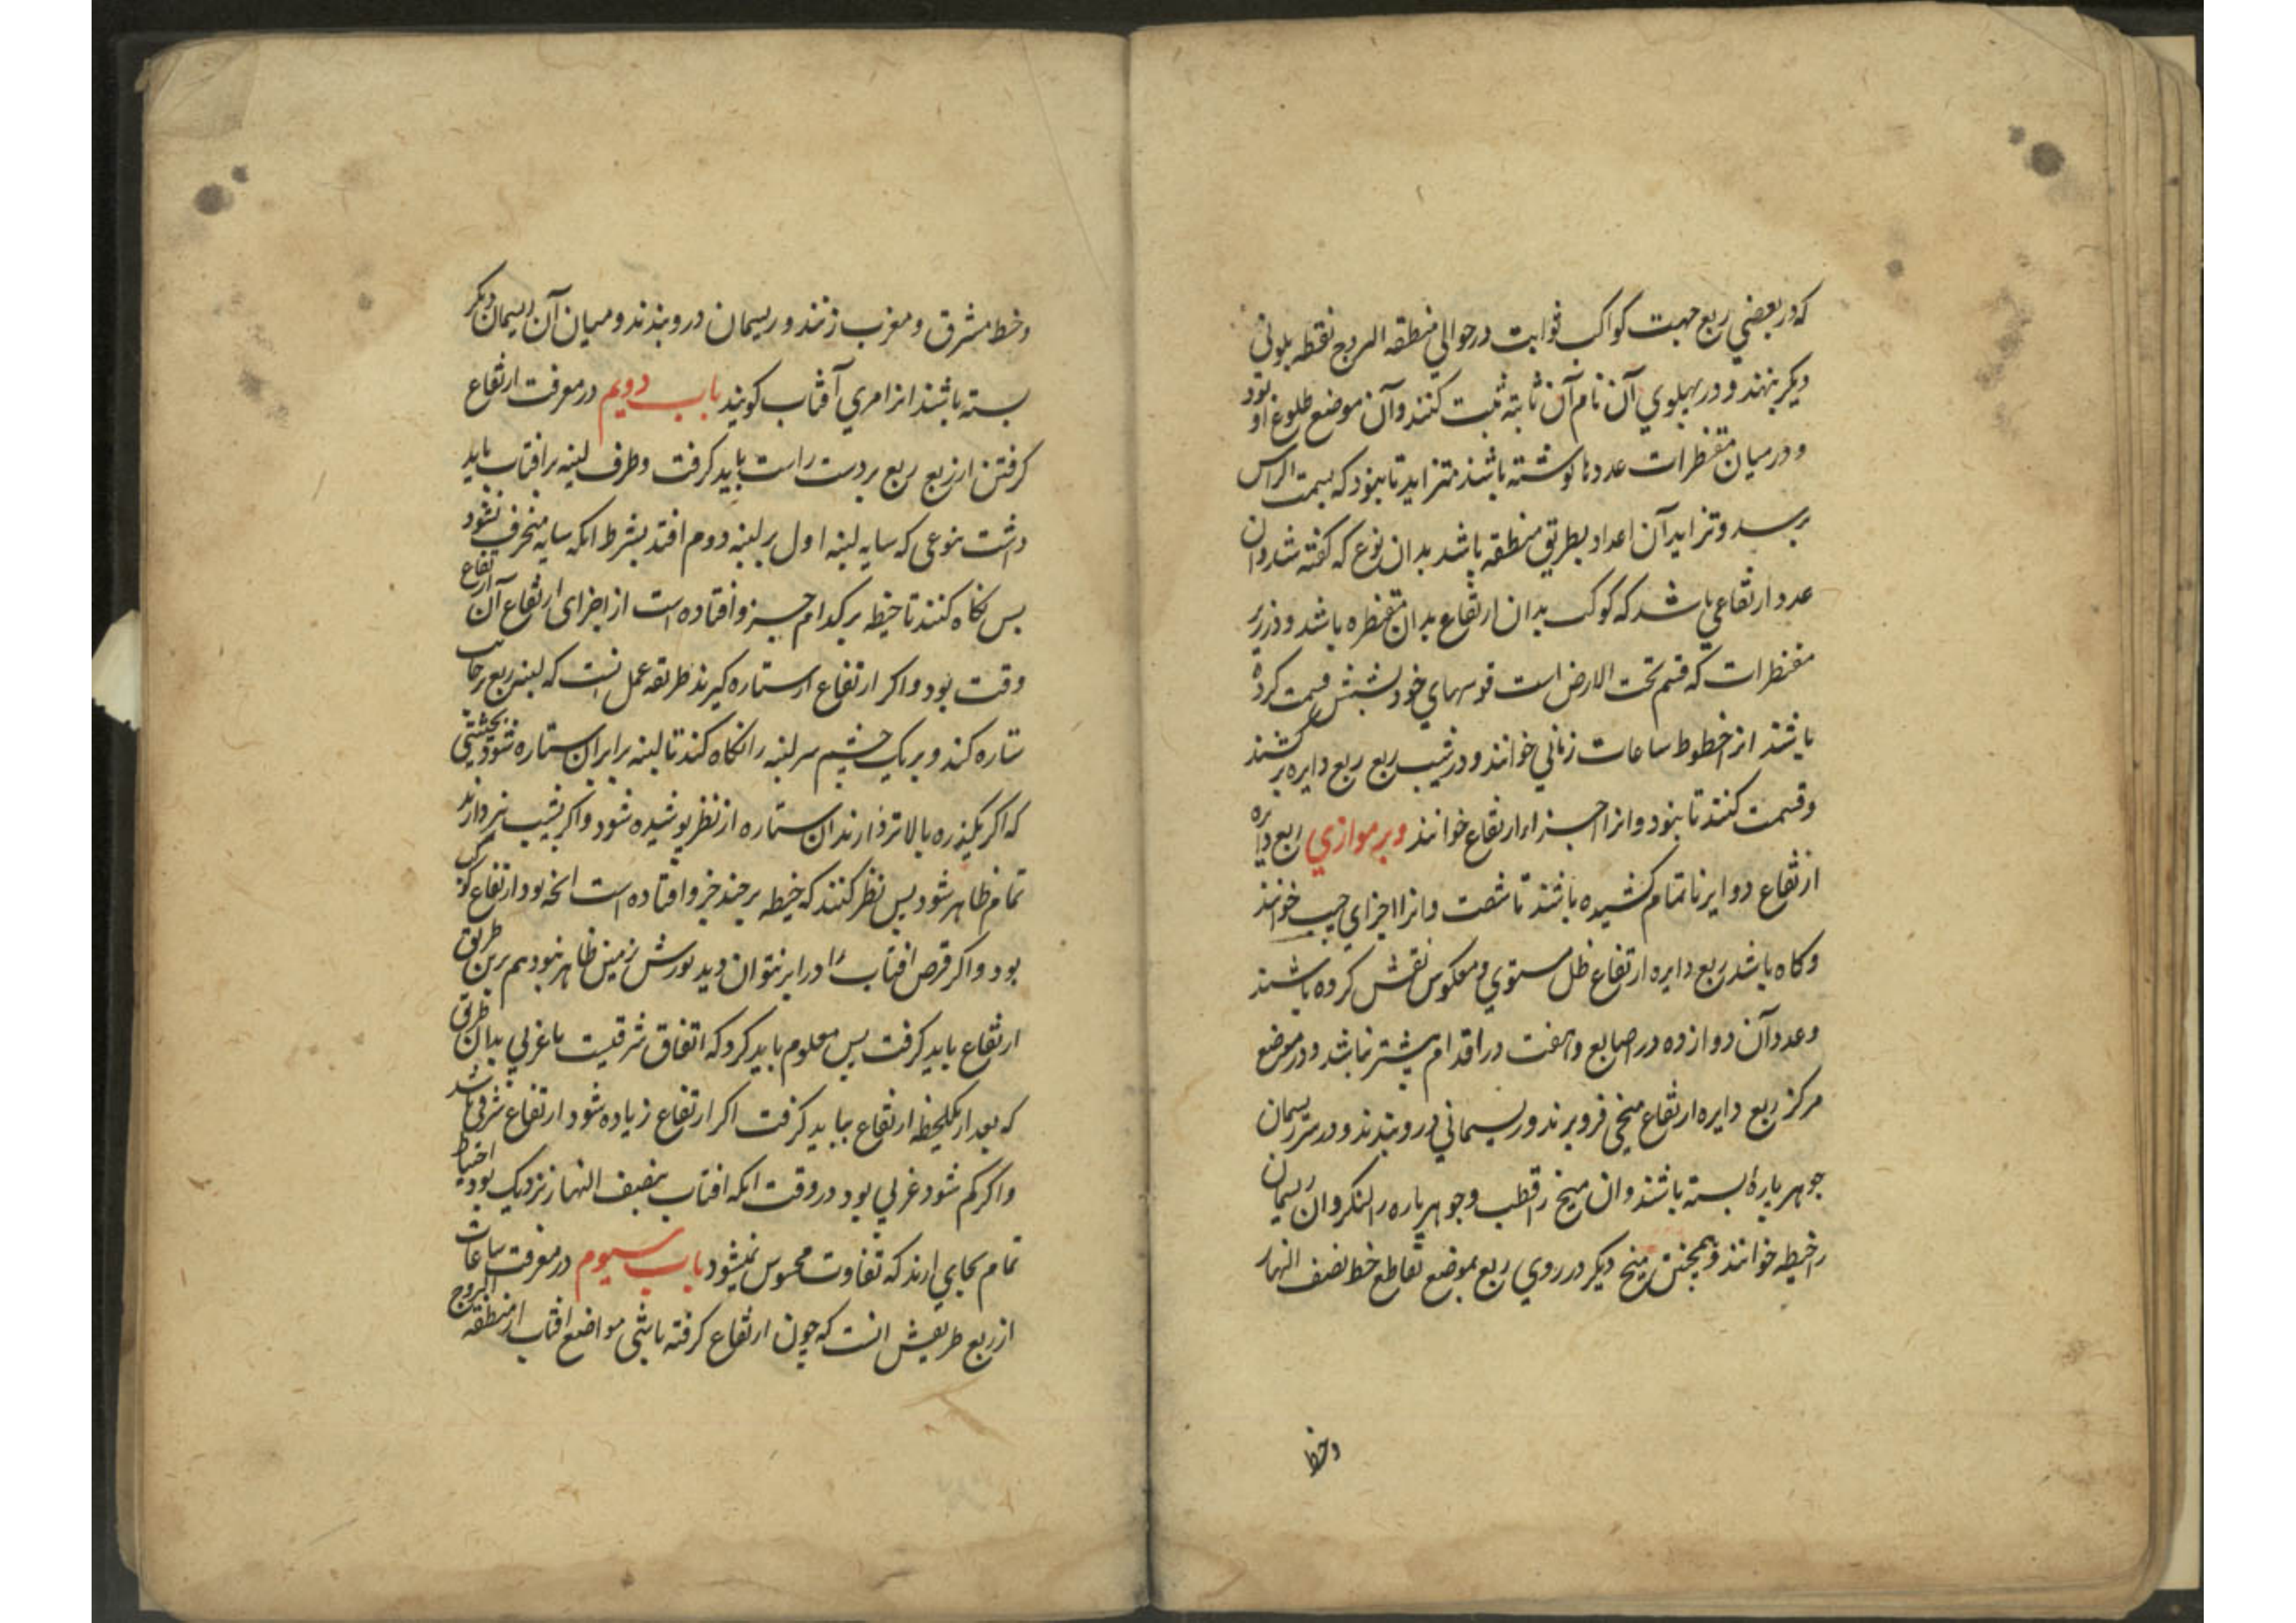 که در بعضی ربع جهت کواکب ثوابت در حوالی منطقه البروج نقطه بلونی
دیگر بنهند و در پهلوي آن نام آن ثابته ثبت کنند و آن موضع طلوع او بود
و در میان مقنطرات عددها نوشته باشند متزاید تا بنود که بسمت الراس
برسد و تزاید آن اعداد بطریق منطقه باشد بدان نوع که کفته شد و ان
عدد ارتفاعي باشد که کوکب بدان ارتفاع بدان مقنطره باشد و در زیر
مقنطرات که قسم تحت الارض است قوسهاي خود بشش قسمت کرده
باشند انرا خطوط ساعات زماني خوانند و در شیب ربع ربع دایره بر کشند
و قسمت کنند تا بنود و انرا اجزاء ارتفاع خوانند و بر موازي ربع دایره
ارتفاع دوایر ناتمام کشیده باشند تا شصت و انرا اجزاي جیب خوانند
و کاه باشد ربع دایره ارتفاع ظل مستوي و معکوس نقش کرده باشند
و عدد آن دوازده در اصابع و هفت در اقدام بیشتر نباشد و در موضع
مرکز ربع دایره ارتفاع میخي فرو برند و ریسماني در و بندند و در سر ریسمان
جوهر پارهٔ بسته باشند و ان میخ را قطب و جوهر پاره را لنکر و ان ریسمان
را خیطه خوانند و همچنین میخ دیکر در روي ربع بموضع تقاطع خط نصف النهار
و خط
و خط مشرق و مغرب زنند و ریسمان در و بندند و میان آن ریسمان دیکر
بسته باشند انرا مري آفتاب کویند باب دویم در معرفت ارتفاع
کرفتن از ربع ربع بر دست راست باید کرفت و طرف لبنه بر افتاب باید
داشت بنوعی که سایه لبنه اول بر لبنه دوم افتد بشرط انکه سایه منحرف نشود
پس نکاه کنند تا خیطه بر کدام جزو افتاده است از اجزای ارتفاع آن ارتفاع
وقت بود و اکر ارتفاع از ستاره کیرند طریقه عمل انست که لبنه ربع بر جانب
ستاره کند و بر یک چشم سر لبنه را نکاه کند تا لبنه برابر ان ستاره شود بحیثیتی
که اکر یکذره بالاتر دارند ان ستاره از نظر پوشیده شود و اکر بشیب تر دارند
تمام ظاهر شود پس نظر کنند که خیطه بر چند جزو افتاده است انچه بود ارتفاع کوکب
بود و اکر قرص افتاب را در ابر نتوان دید نورش زمین ظاهر بنود هم برین طریق
ارتفاع باید کرفت پس معلوم باید کرد که اتفاق شرقیست یا غربي بدان طریق
که بعد از یکلحظه ارتفاع بباید کرفت اکر ارتفاع زیاده شود ارتفاع شرقي باشد
و اکر کم شود غربي بود در وقت انکه افتاب بنصف النهار نزدیک بود احتیاط
تمام بجاي ارند که تفاوت محسوس نمیشود باب سیوم در معرفت ساعات
از ربع طریقش انست که چون ارتفاع کرفته باشی مواضع افتاب از منطقه البروج